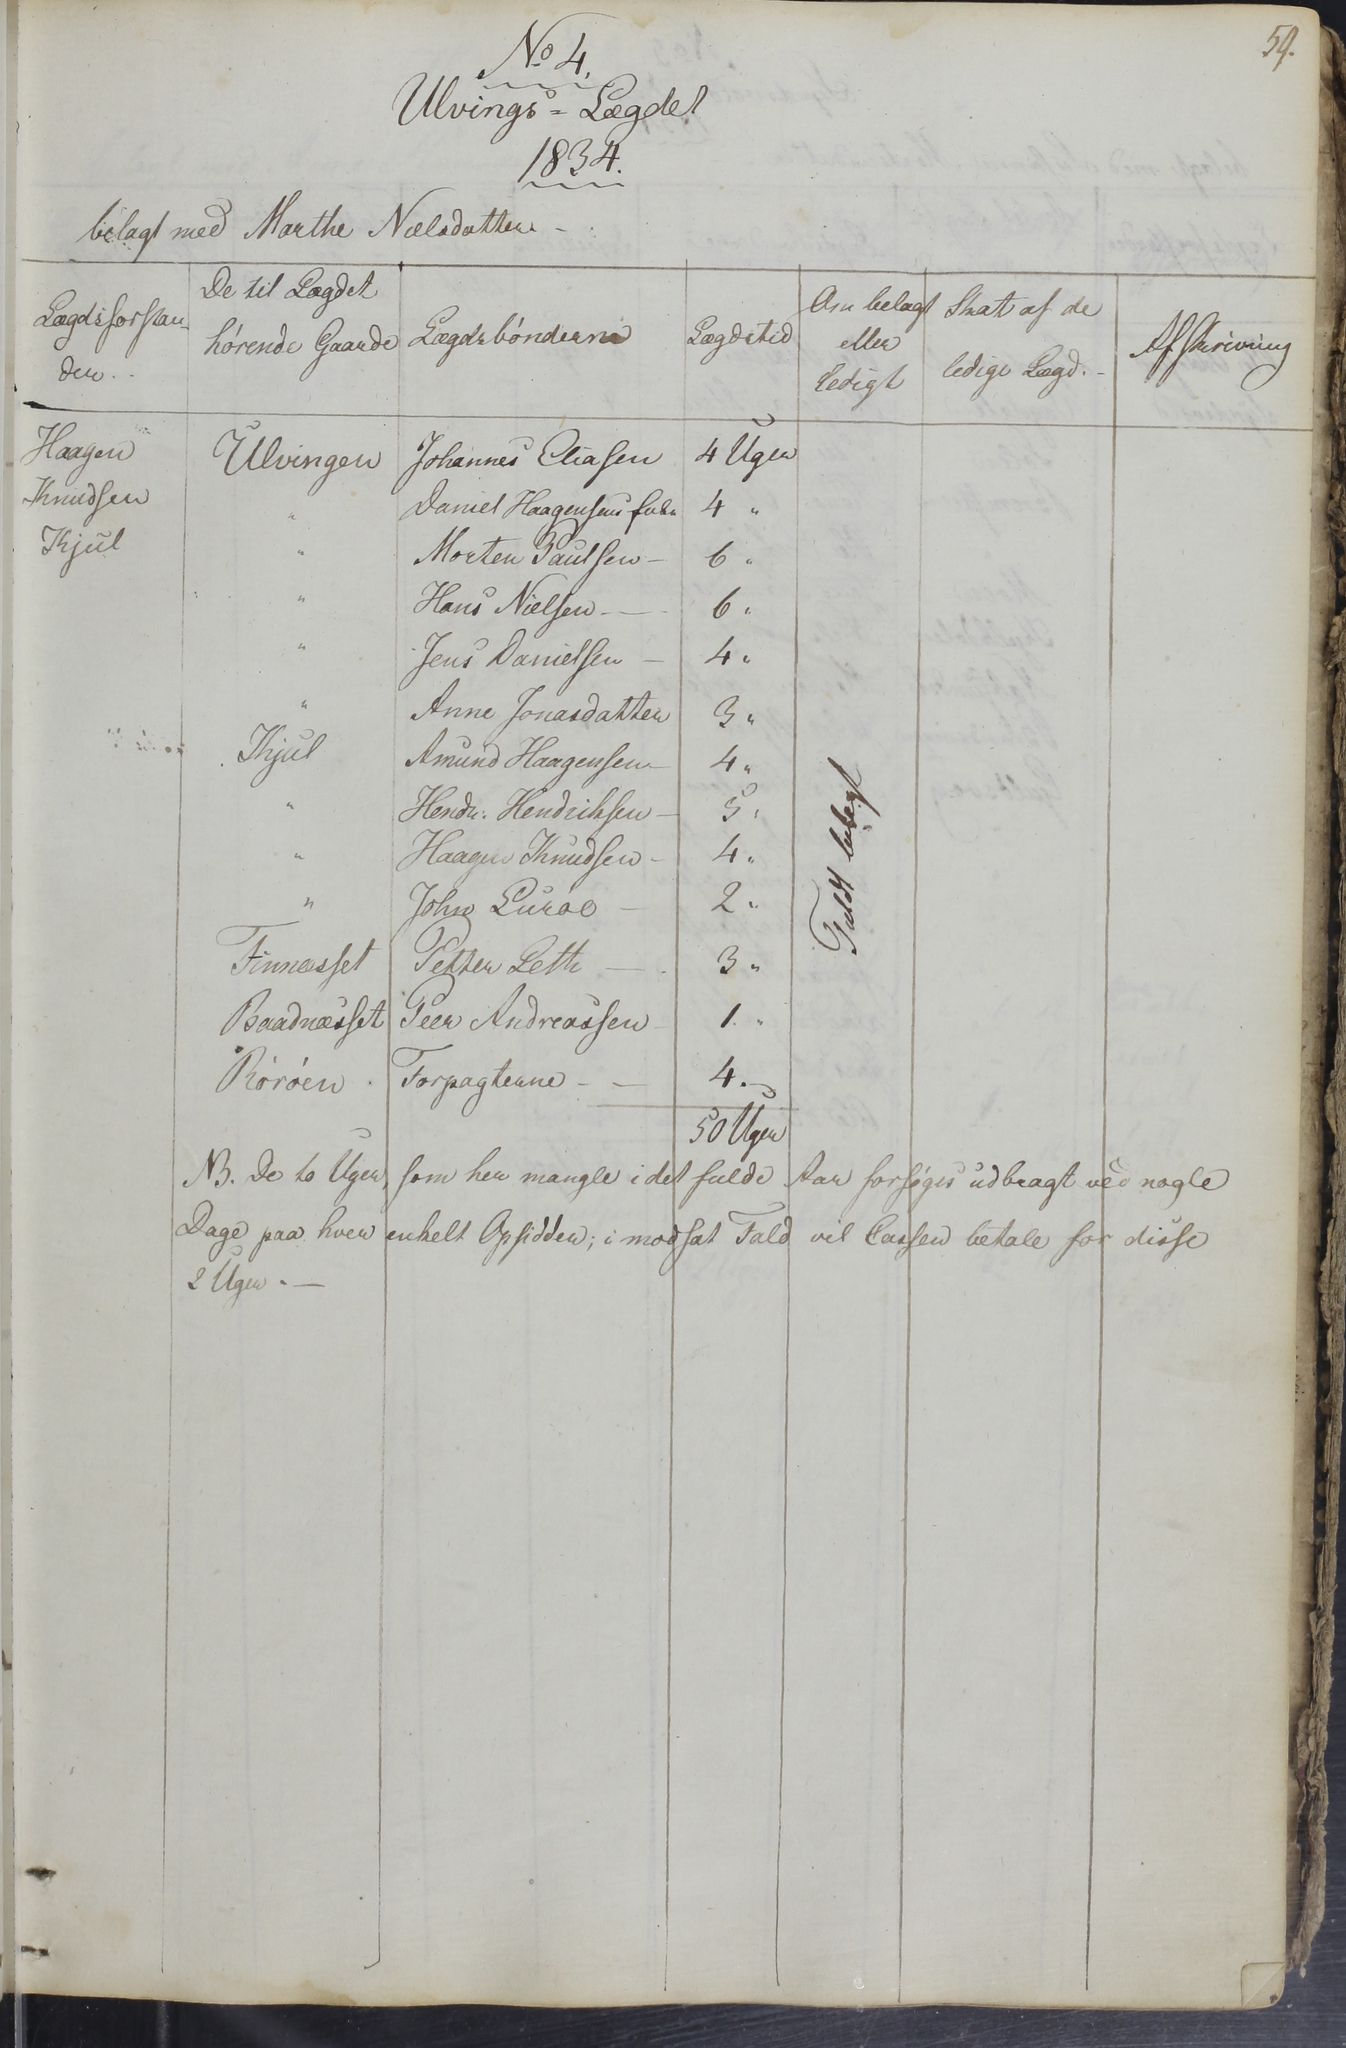 59.
No 4.
Ulvings=Lægdet
1834.
belagt med Marthe Nielsdatter -
Lægdsforstan-
der.
De til Lægdet
hørende Gaarde
Lægdsbønderne
Lægdstid
Om belagt
eller
ledigt
Skat af de
ledige Lægd. -
Afskrivning
Haagen Ulvingen Johannes Eliasen 4 Uger
Knudsen " Daniel Haagensens 4 "
Kjul " Morten Paulsen - 6 "
" Hans Nielsen - 6 "
" Jens Danielsen - 4 "
" Anne Jonasdatter 3 "
Kjul Amund Haagensen - 4 "
" Hendr. Hendriksen - 5 "
" Haagen Knudsen - 4 "
" John Luroe - 2 "
Finnæsset Petter Leth - 3 "
Baadnæsset Peer Andreassen 1. "
Rørøen Forpagterne - - 4. -
Fuldt belagt
50 Uger
NB. De to Uger, som her mangle i det fulde Aar forsøges udbragt ved nogle
Dage paa hver enkelt Opsidder; i modsat Fald vil Cassen betale for disse
2 Uger. -